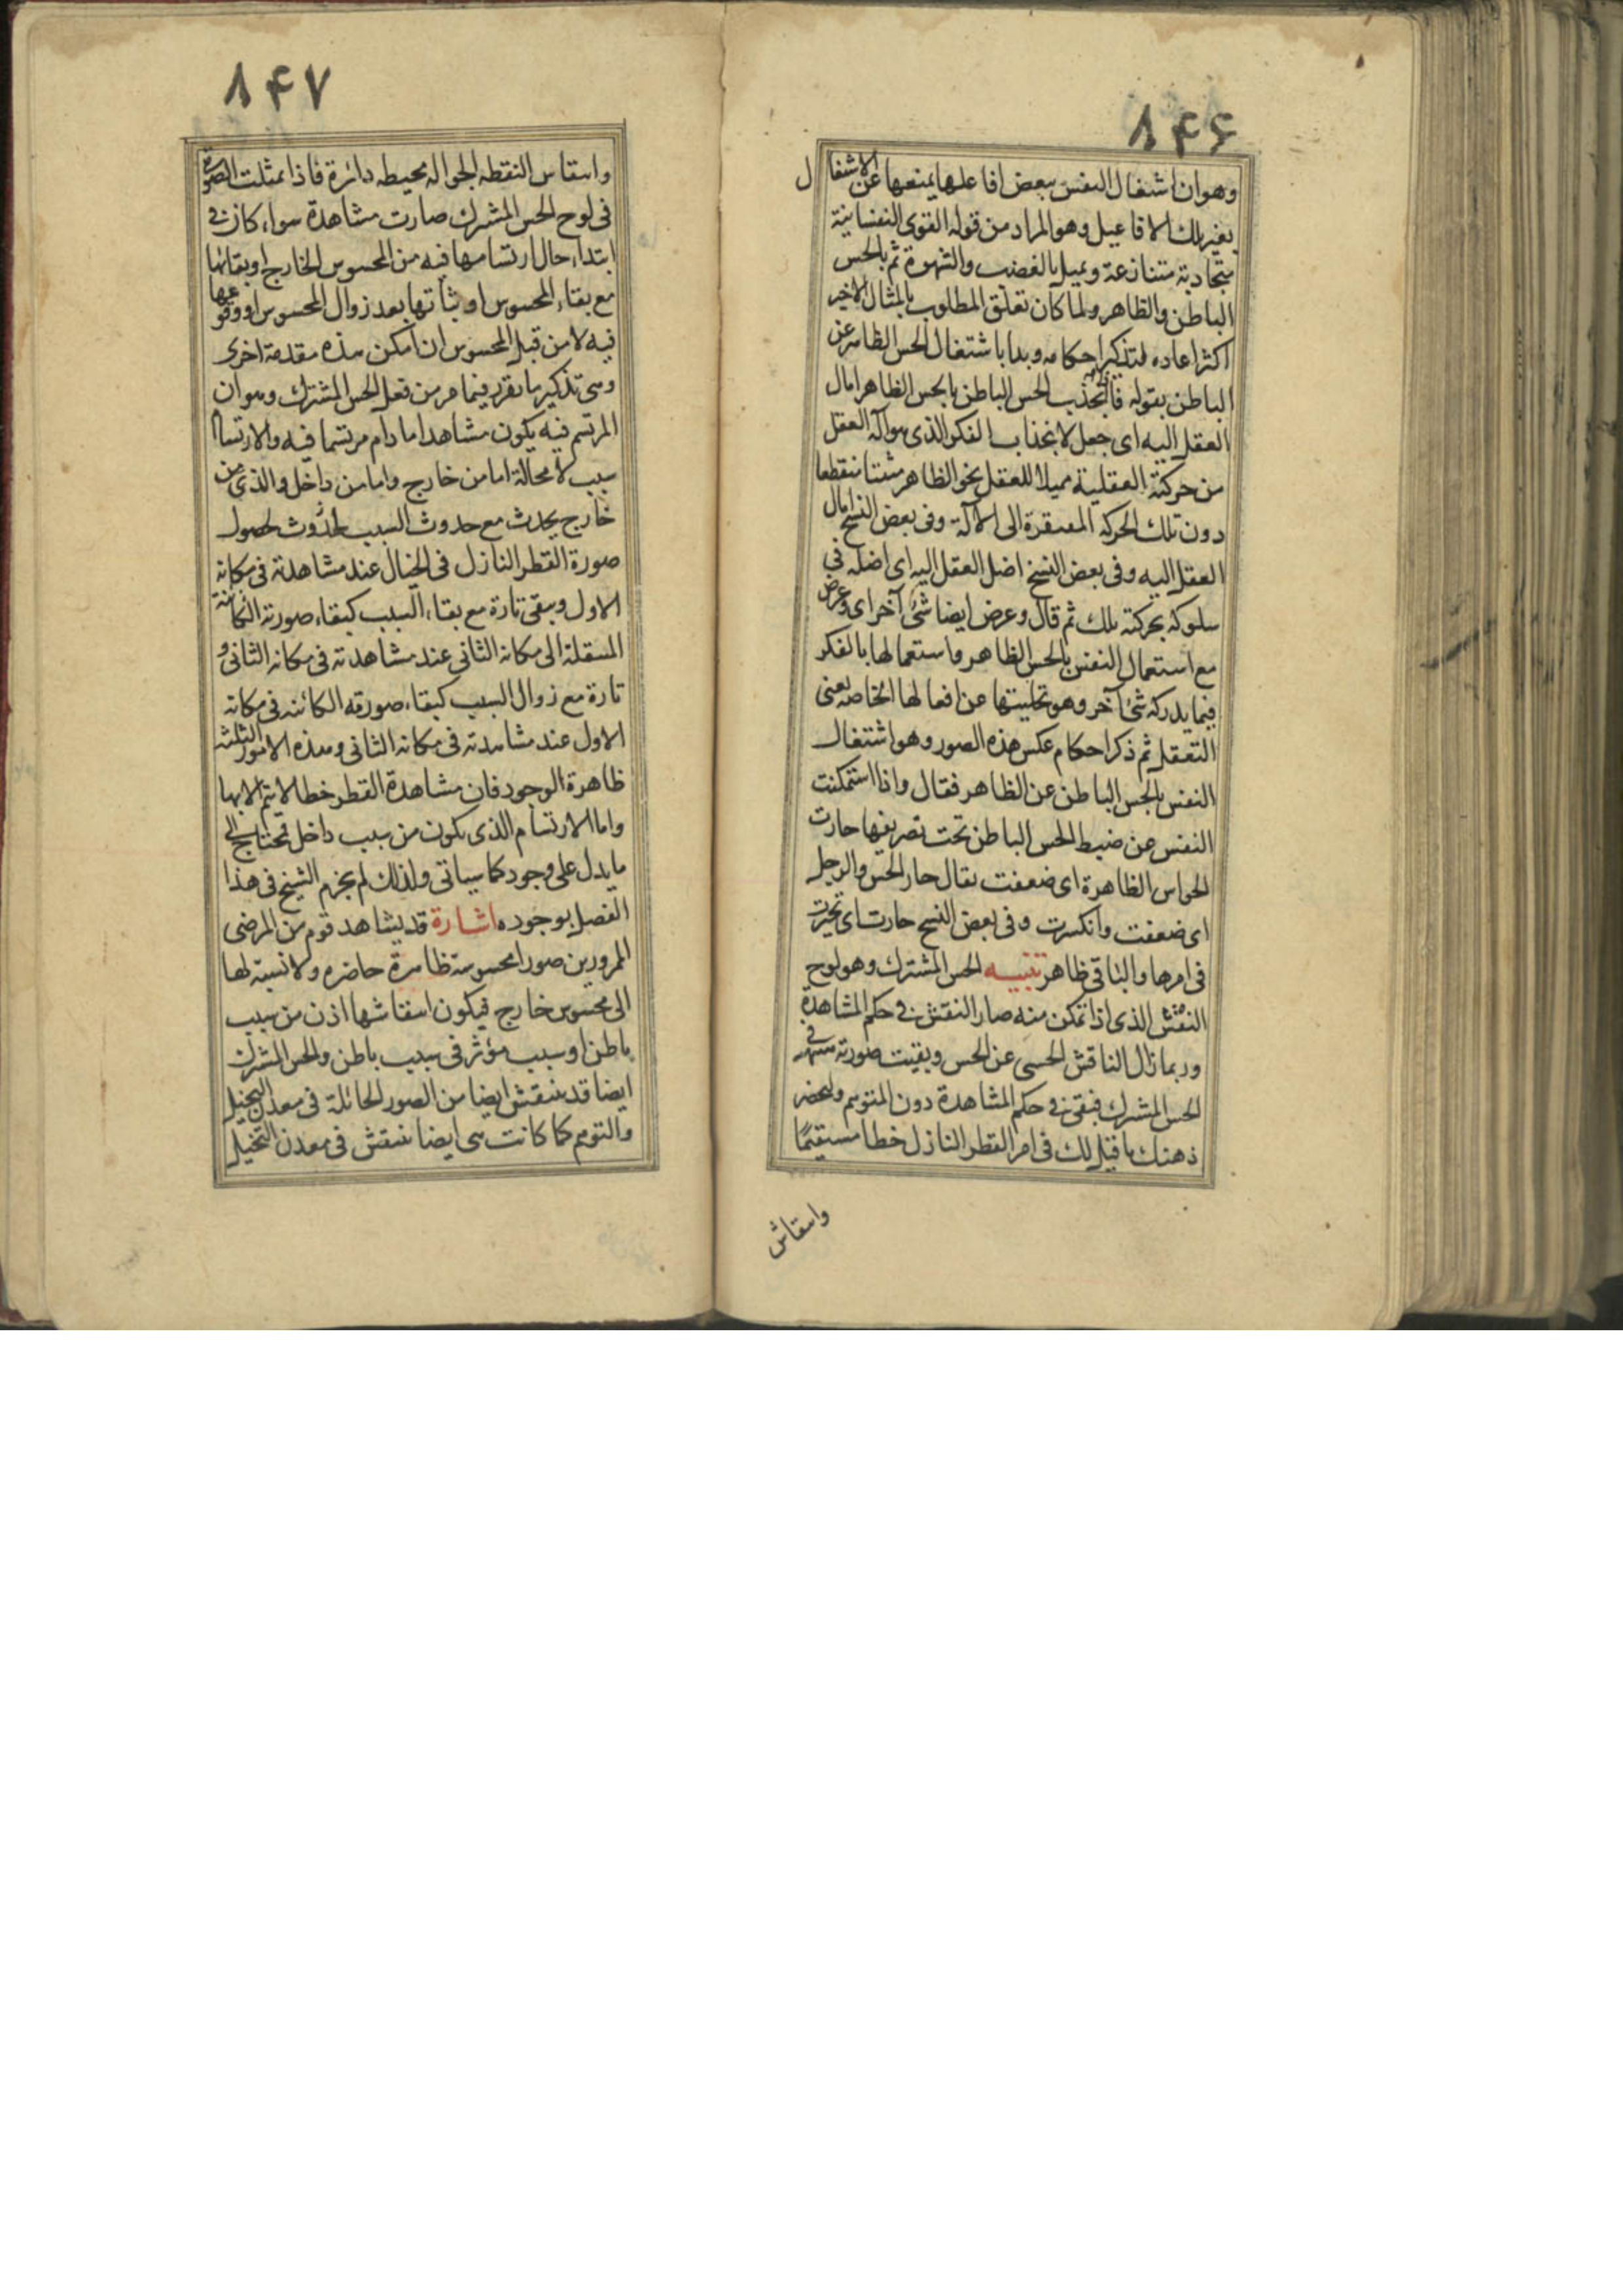 ٨۴۶
وهو ان اشتغال النفس ببعض افاعيلها يمنعها عن الاشتغال
بغير تلك الافاعيل وهو المراد من قوله القوى النفسانية
متجاذبة متنازعة وتميل بالغضب والشهوة ثم بالحس
الباطن والظاهر ولما كان تعلق المطلوب بالمثال الاخير
اكثر اعاده لتذكير احكامه وبدا باشتغال الحس الظاهر عن
الباطن بقوله فانجذب الحس الباطن بالحس الظاهر امال
العقل اليه اى جعل لانجذاب الفكر الذى هو آلة العقل
من حركته العقلية مميلا للعقل نحو الظاهر منقطعا
دون تلك الحركة المفتقرة الى الآلة وفى بعض النسخ امال
العقل اليه وفى بعض النسخ اضل العقل اليه اى اضله فى
سلوكه بحركته تلك ثم قال وعرض ايضا شئ آخر اى وعرض
مع استعمال النفس بالحس الظاهر واستعمالها بالفكر
فيما يدركه شئ آخر وهو تخليتها عن افعالها الخاصه يعنى
التعقل ثم ذكر احكام عكس هذه الصور وهو اشتغال
النفس بالحس الباطن عن الظاهر فقال واذا استمكنت
النفس عن ضبط الحس الباطن تحت تصريفها حارت
الحواس الظاهرة اى ضعفت يقال حار الحس والرجل
اى ضعفت وانكسرت وفى بعض النسخ حارت اى تحيرت
فى امرها والباقى ظاهر تنبيه الحس المشترك وهو لوح
النقش الذى اذا تمكن منه صار النقش فى حكم المشاهدة
وربما زال الناقش الحسى عن الحس وبقيت صورته فى
الحس المشترك فبقى فى حكم المشاهدة دون المتوهم وليحضر
ذهنك ما قيل لك فى امر القطر النازل خطا مستقيمًا
وانتقاش
٨۴٧
وانتقاش النقطه الجواله محيطه دائرة فاذا تمثلت الصورة
فى لوح الحس المشترك صارت مشاهدة سواء كان فى
ابتداء حال ارتسامها فيه من المحسوس الخارج او بقائها
مع بقاء المحسوس او ثباتها بعد زوال المحسوس او وقوعها
فيه لا من قبل المحسوس ان امكن هذه مقدمة اخرى
وهى تذكير ما تقرر فيما مر من فعل الحس المشترك وهو ان
المرتسم فيه يكون مشاهدا ما دام مرتسما فيه والارتسام
سبب لا محالة اما من خارج واما من داخل والذى من
خارج يحدث مع حدوث السبب لحدوث لحصول
صورة القطر النازل فى الخيال عند مشاهدته فى مكانه
الاول ويبقى تارة مع بقاء السبب كبقاء صورته الكائنة
المنتقلة الى مكانه الثانى عند مشاهدته فى مكانه الثانى و
تارة مع زوال السبب كبقاء صورته الكائنه فى مكانه
الاول عند مشاهدته فى مكانه الثانى وهذه الامور الثلثه
ظاهرة الوجود فان مشاهدة القطر خطا لا يتم الا بها
واما الارتسام الذى يكون من سبب داخل فمحتاج الى
ما يدل على وجود كما سياتى ولذلك لم يجزم الشيخ فى هذا
الفصل بوجوده اشارة قد يشاهد قوم من المرضى
الممرورين صورا محسوسة ظاهرة حاضره ولا نسبة لها
الى محسوس خارج فيكون انتقاشها اذن من سبب
باطن او سبب مؤثر فى سبب باطن والحس المشترك
ايضا قد ينتقش ايضا من الصور الجائلة فى معدن التخيل
والتوهم كما كانت هى ايضا ينتقش فى معدن التخيل